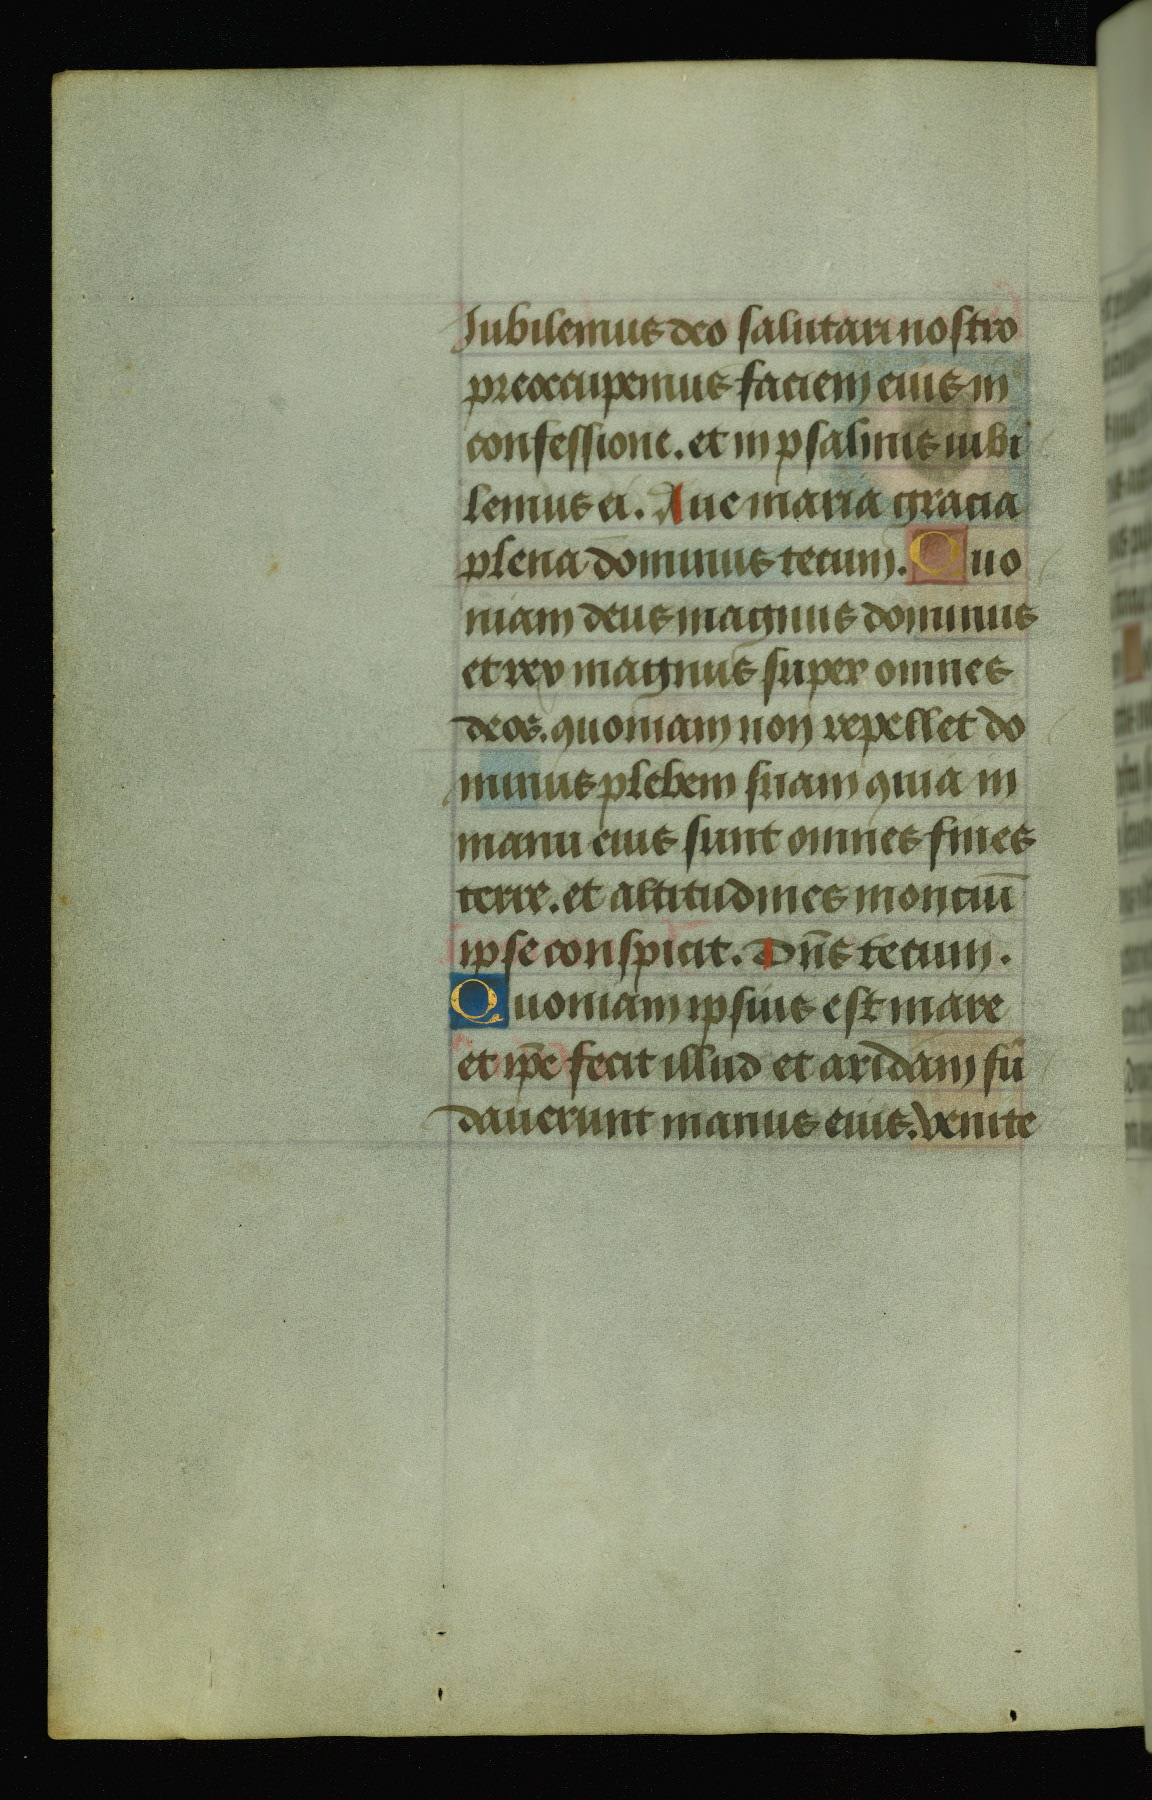 Iubilemus deo salutari nostro
preoccupemus faciem eius in
confessione. et in psalmis iubi
lemus ei. Aue maria gracia
plena dominus tecum. Quo
niam deus magnus dominus
et rex magnus super omnes
deos. quoniam non repellet do
minus plebem suam quia in
manu eius sunt omnes fines
terre. et altitudines monciū
ipse conspicit. Dn̄s tecum.
Quoniam ipsius est mare
et ip̄e fecit illud et aridam fū
dauerunt manus eius. Venite